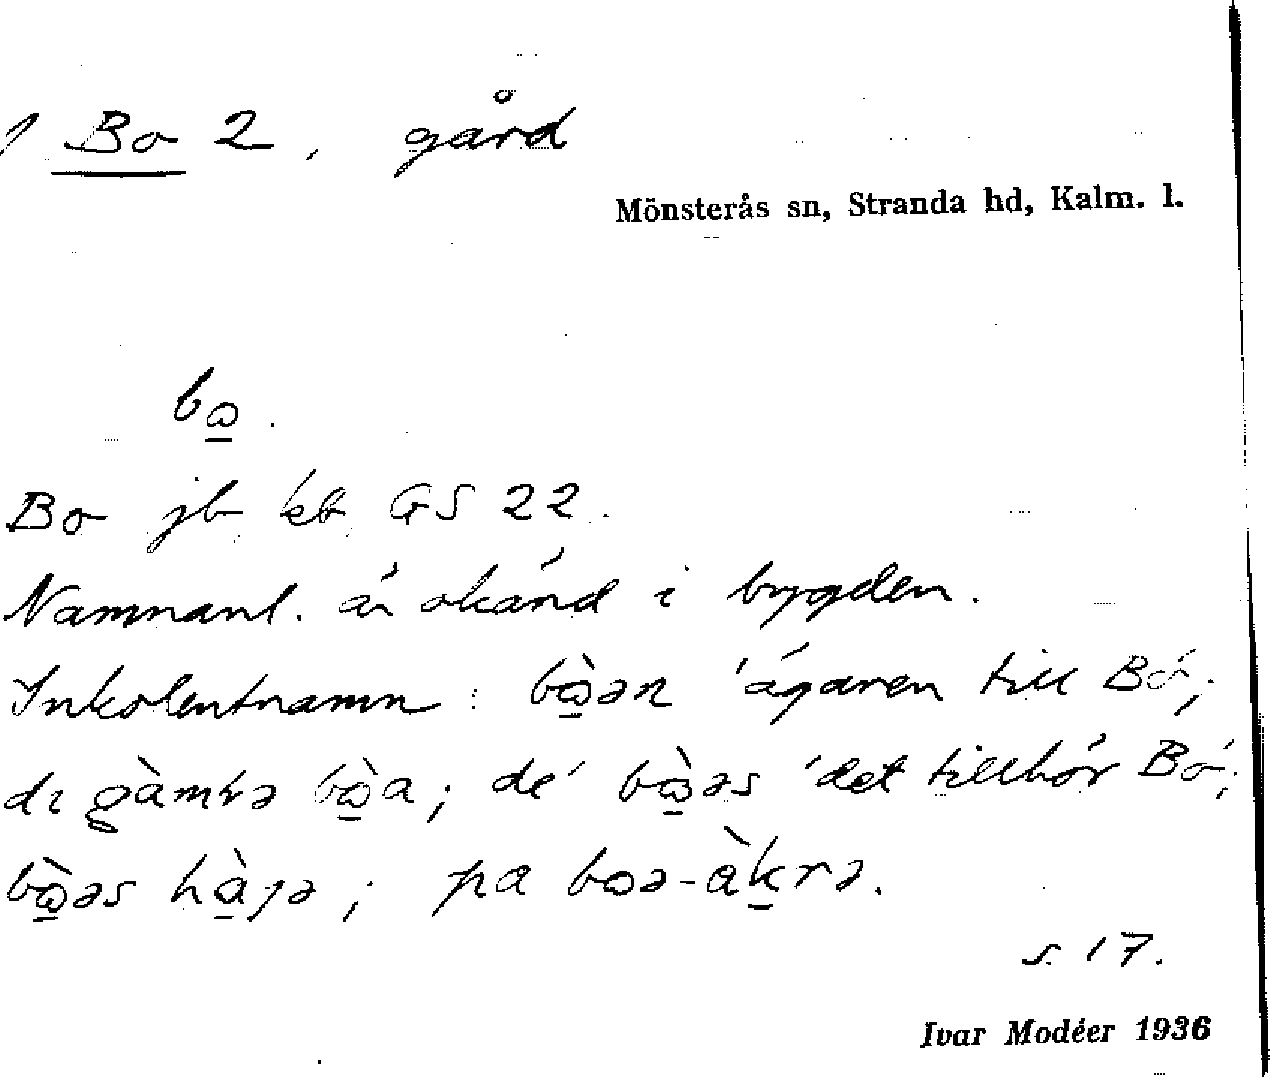 Bo 2, gård
Mönsterås sn, Stranda hd, Kalm. l.
bω̲.
Bo jb kb GS 22.
Namnanl. är okänd i bygden.
Inkolentnamn: bὼ̲ən 'ägaren till Bo';
dɪ gàmɫə bὼ̲a; de' bὼ̲əs 'det tillhör Bo';
bὼ̲əs hà̲ɟə; pa bωə-àk̲rə.
s. 17.
Ivar Modéer 1936